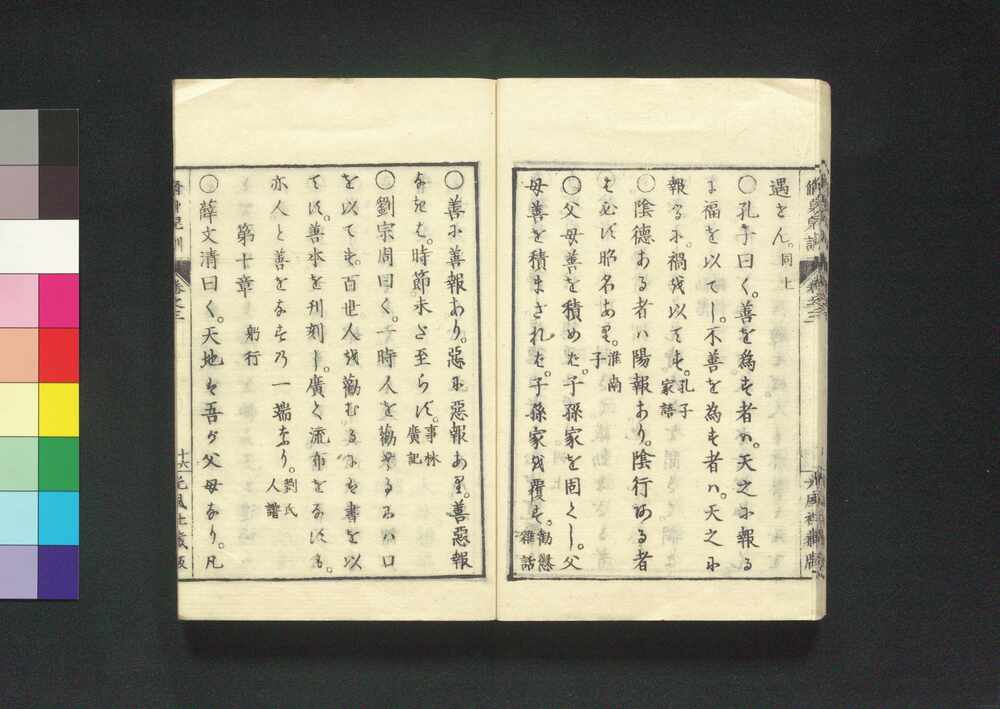 遇せん。同上
○孔子曰く。善を為す者ハ。天之に報る
に福を以てし。不善を為す者ハ。天之に
報るに。禍を以てす。孔子家語
○陰徳ある者ハ陽報あり。陰行ある者
は必ず昭名あり。淮南子
○父母善を積めば。子孫家を固くし。父
母善を積まざれば。子孫家を覆す。勧懲雑話
○善に善報あり。惡に惡報あり。善惡報
なきは。時節未だ至らず。事林廣記
○劉宗周曰く。一時人を勸むるにハ口
を以てす。百世人を勸むるにハ書を以
てす。善本を刊刻し。廣く流布をなすも。
亦人と善をなすの一端なり。劉氏人譜
第十章　躬行
○薛文清曰く。天地は吾が父母なり。凡
卷之三
十六